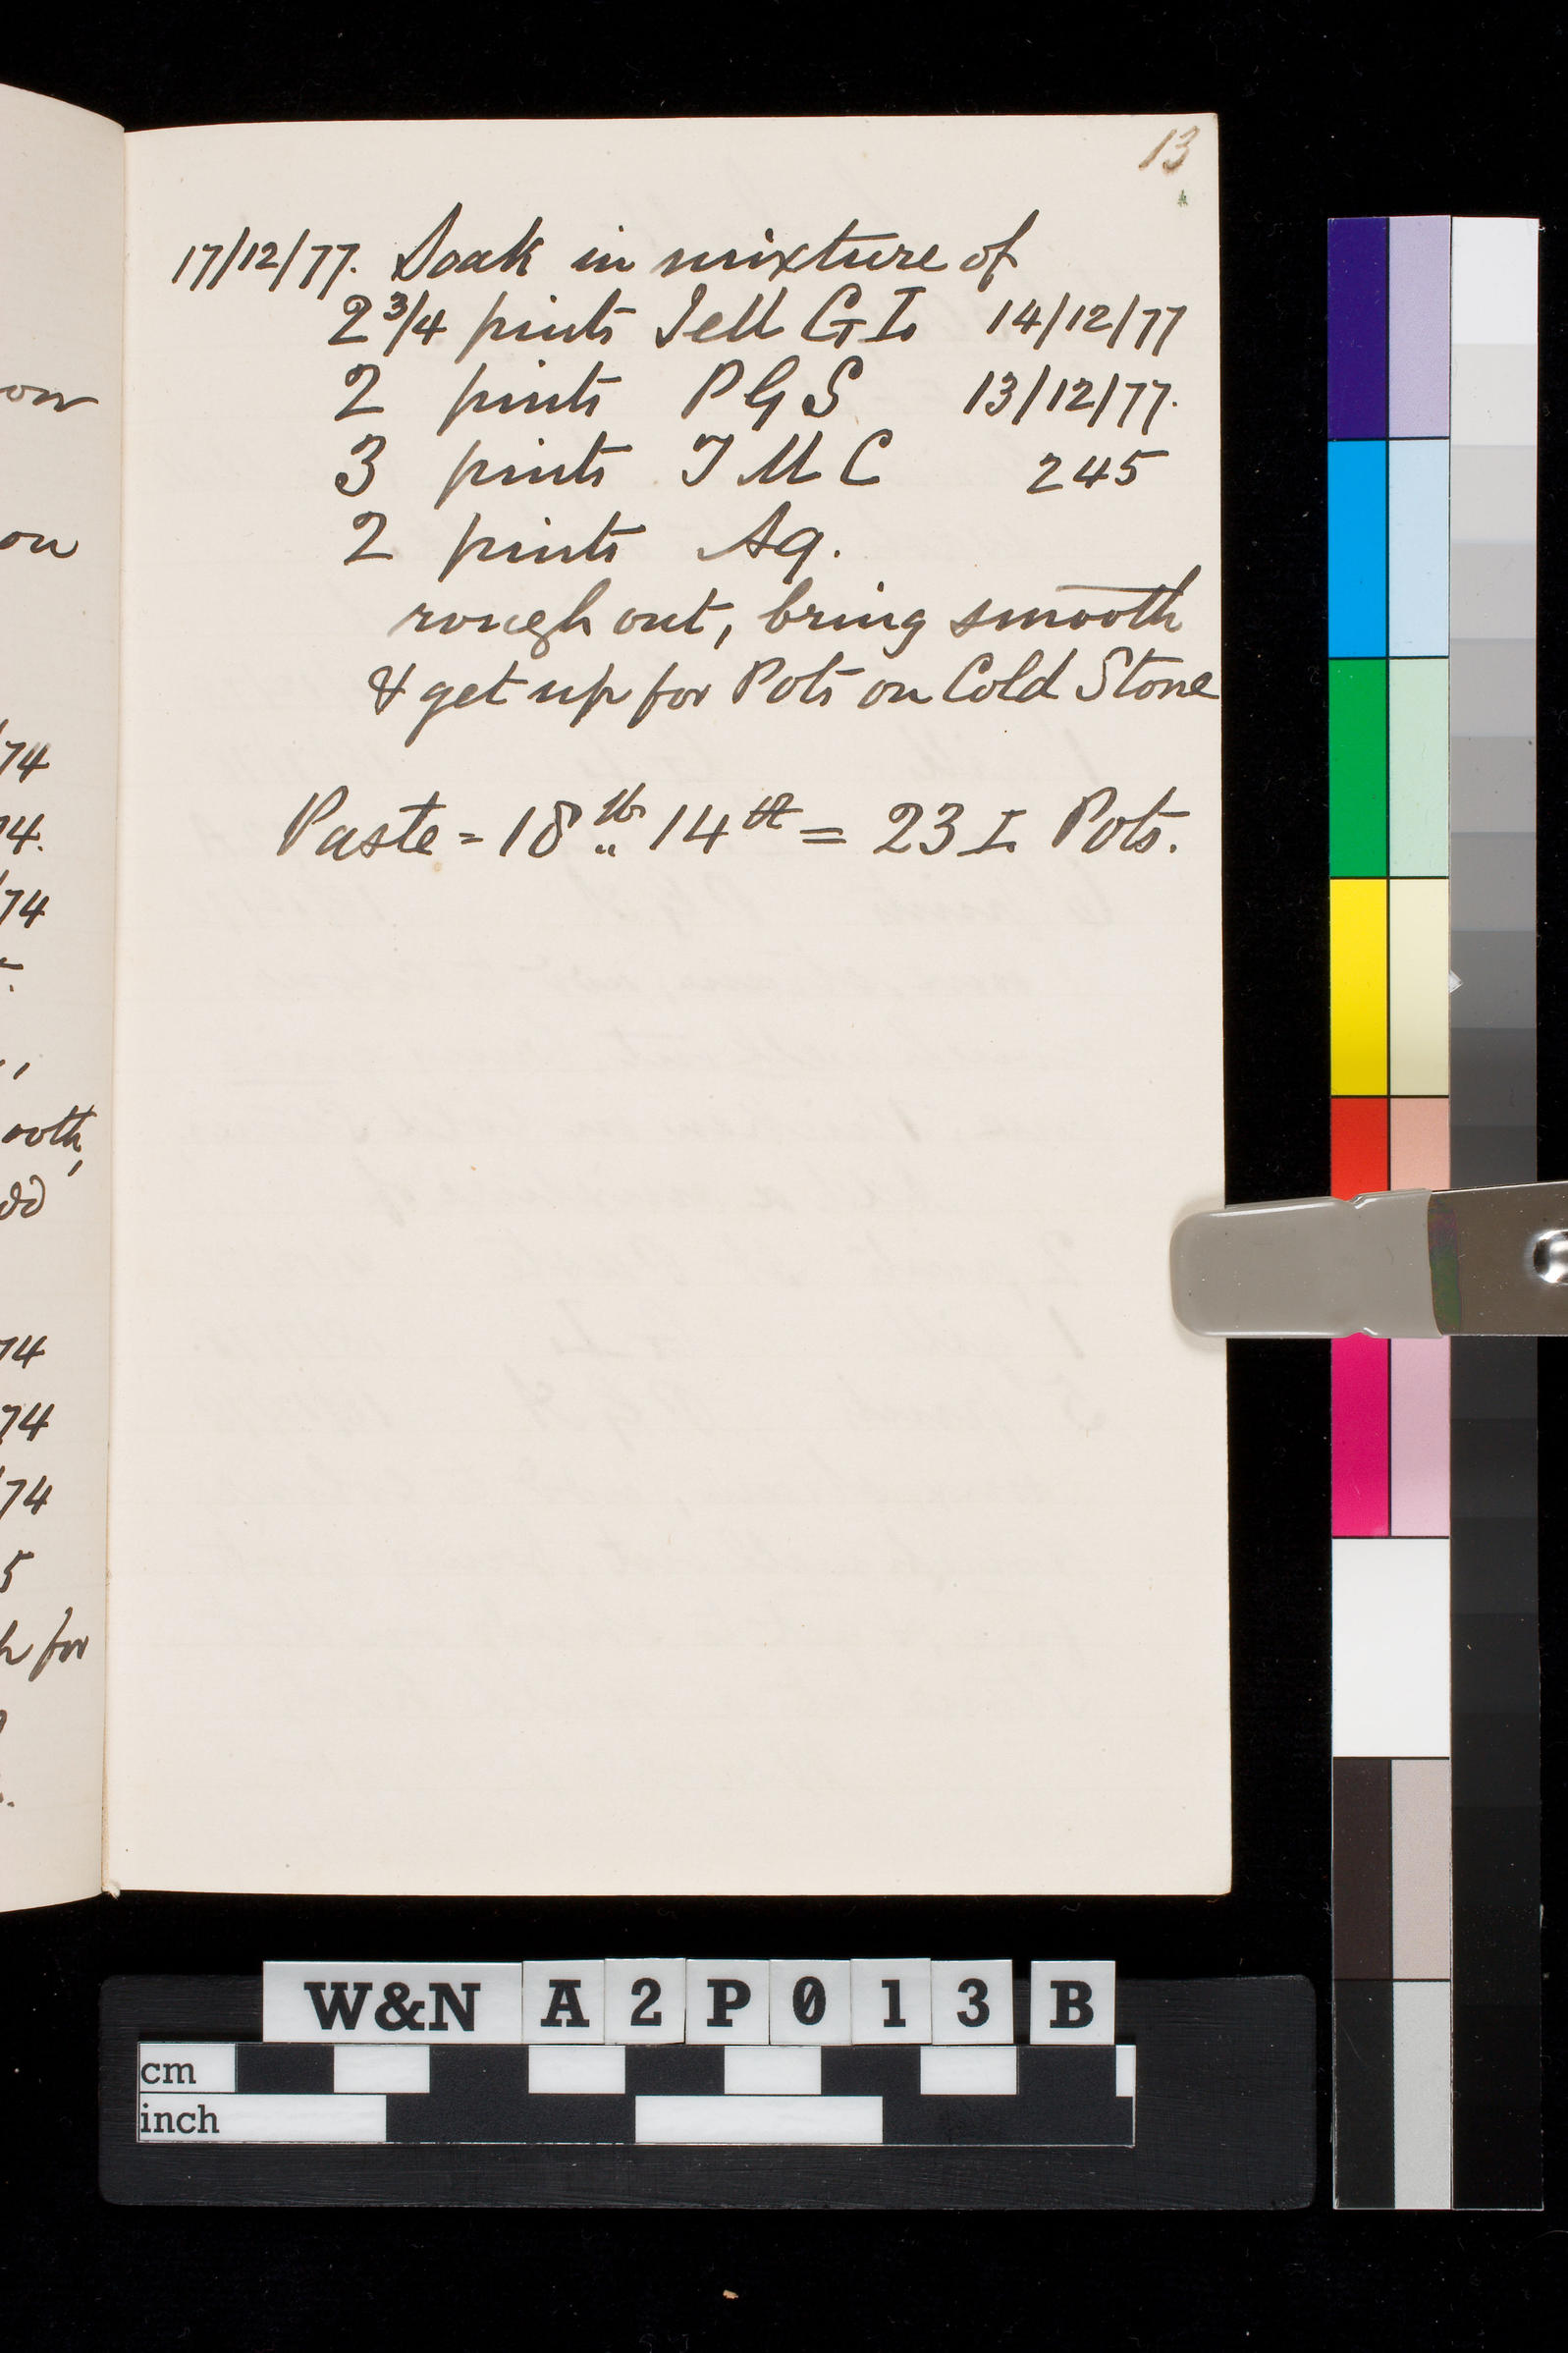 13
17/12/77. Soak in mixture of
2 3/4 pints Jell G I 14/12/77
2 pints P G S 13/12/77.
3 pints T M C 245
2 pints Aq.
rough out, bring smooth
& get up for Pots on Cold Stone
Paste = 18 lbs " 14 = 23 I Pots.
on
on
/74
74.
/74
ooth,
74
74
/74
5
for
W&N A2P013B
cm
inch